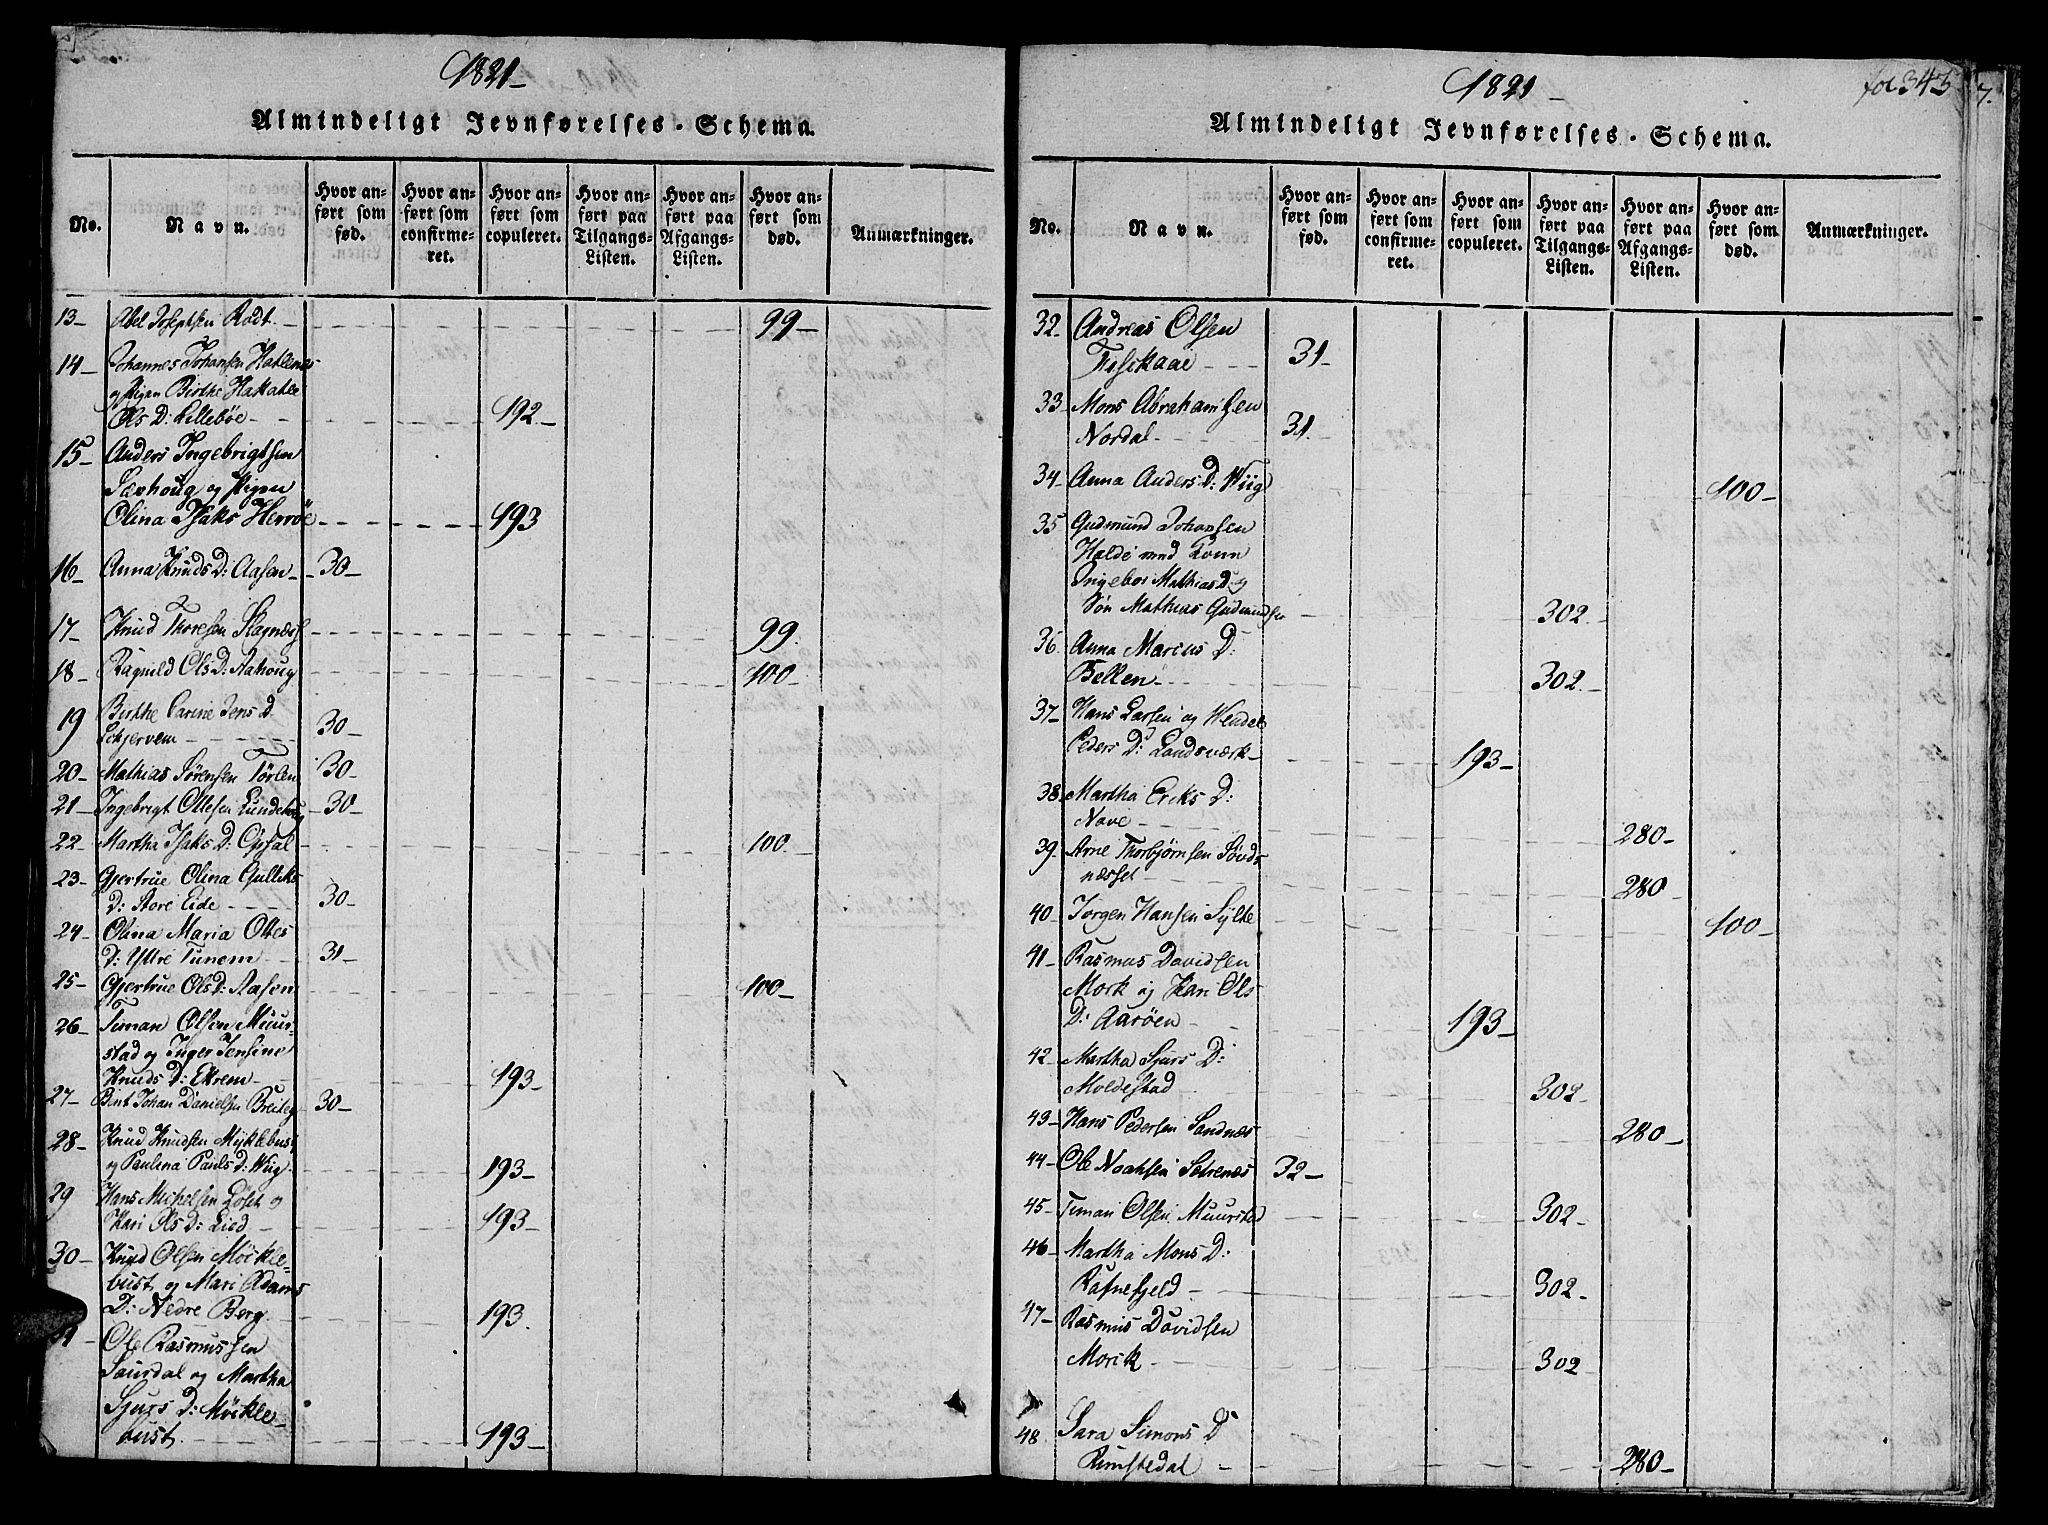 1821-
Almindeligt Jevnførelses-Schema.
No.
Navn.
Hvor anført som fød.
Hvor anført som confirmeret.
Hvor anført som copuleret.
Hvor anført paa Tilgangs-Listen.
Hvor anført paa Afgangs-Listen.
Hvor anført som død.
Anmærkninger.
13- Abel Josephsen Rødt. 99-
14- Johannes Johansen Hatlenes
og Pigen Birthe
Ols D: Lillebøe- 192-
15- Anders Ingebrigtsen
og Pigen
Olina Isaks Herrøe 193
16- Anna Knuds D: Aasen- 30-
17- Knud Thoresen 99.
18- Ragnild Ols D: 100-
19 Birthe Carine Jens D
30-
20- Mathias Sørensen 30-
21- Ingebrigt Ollesen 30-
22- Martha Isaks D: Opsal- 100.
23- Gjertrue Olina Gulleks
D: Store Eide 30-
24- Olina Maria Olles
D: Yttre Tunem 31-
25- Gjertrue Ols D: Aasen 100-
26- Timan Olsen Muur-
stad og Inger Jensine
Knuds D: Ekrem- 193-
27- Bent Johan Danielsen 30-
28- Knud Knudsen Myklebust
og Paulina Pauls D: Wiig- 193-
29 Hans Michelsen Løset og
Kari Ols D: Lied 193-
30- Knud Olsen Möckle-
bust og Mari Adams
D: Nedre Berg. 193.
Ole Rasmussen
og Martha
Sjurs D: Möckle-
bust. 193-
1821-
fol 343
Almindeligt Jevnførelses-Schema.
No.
Navn.
Hvor anført som fød.
Hvor anført som confirmeret.
Hvor anført som copuleret.
Hvor anført paa Tilgangs-Listen.
Hvor anført paa Afgangs-Listen.
Hvor anført som død.
Anmærkninger.
32- Andreas Olsen
31-
33- Mons Abrahamsen
Nordal 31.
34- Anna Anders D: Wiig 100-
35 Gudmund Johansen
med Konn
Ingebor Mathias D: og
Søn Mathias Gudmundsen 302.
36. Anna Marius D:
302.
37- Hans Larsen og Wendel
Peders D: Landsværk- 193-
38. Martha Eriks D:
Nave 280-
39- Arne Thorbjørnsen
næsset 280
40- Jørgen Hansen Sylte 100-
41- Rasmus Davidsen
Mork og Kari Ols
D: Aarøen 193-
42- Martha Sjurs D:
Moldestad 302.
43- Hans Pedersen Sandnæs 280-
44- Ole Noahsen 32-
45- Timan Olsen Muurstad 302-
46- Martha Mons D:
Rafnefjeld 302-
47- Rasmus Davidsen
Morik 302
48 Sara Simons D
280-